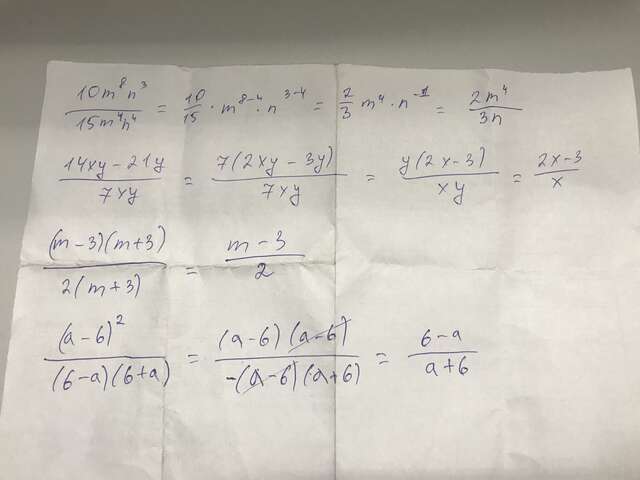 10m⁸n³/15m⁴n⁴ = 10/15 · m⁸⁻⁴ · n³⁻⁴ = 2/3 m⁴ · n⁻¹ = 2m⁴/3n
(14xy – 21y)/7xy = 7(2xy – 3y)/7xy = y(2x – 3)/xy = (2x – 3)/x
(m – 3)(m + 3)/2(m + 3) = (m – 3)/2
(a – 6)²/(6 – a)(6 + a) = (a – 6)(a – 6)/-(a – 6)(a + 6) = (6 – a)/(a + 6)